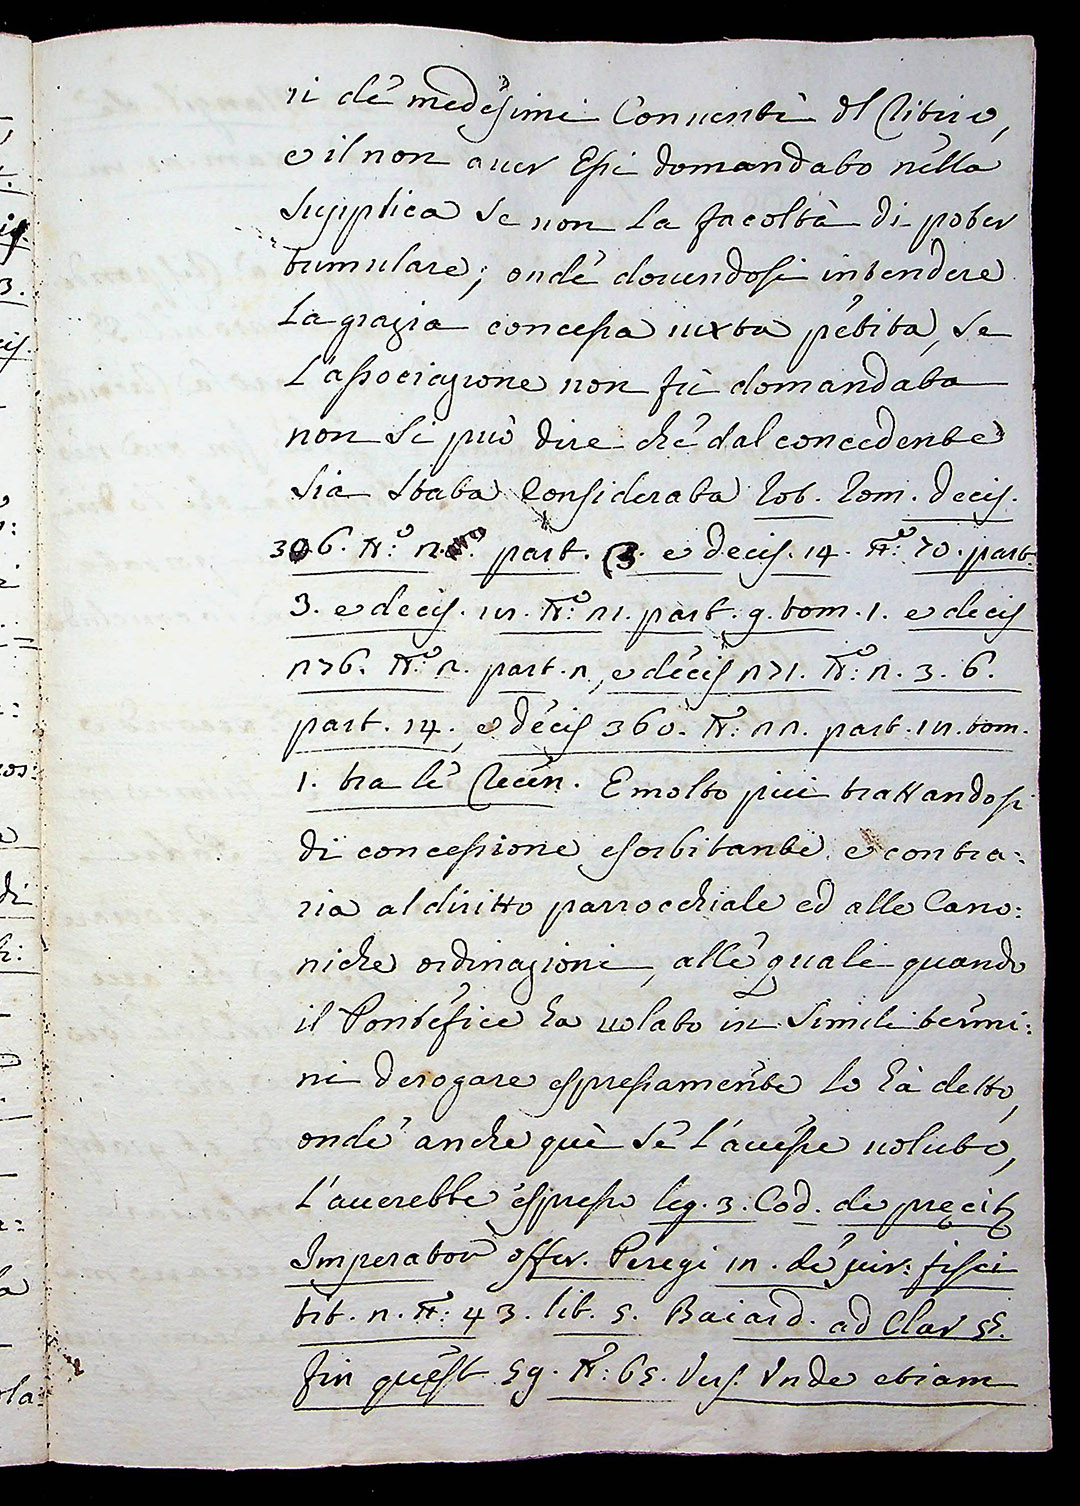 ri de medesimi Conventi di Ritiro,
e il non aver Essi domandato nella
Supplica se non la facoltà di poter
tumulare; onde dovendosi intendere
la grazia concessa iuxta petita, se
l'associazione non fù domandata
non si può dire che dal concedente
sia stata considerata Rot. Rom. decis.
306. N.º 2. part. 3. e decis. 14. N.º 70. part.
3. e decis. 12. N.º 21. part. 9. tom. 1. e decis
276. N.º 2. part. 2, e decis 271. N.º 2. 3. 6.
part. 14., e decis 360. N.º 22. part. 12. tom.
1. tra le Recen. E molto più trattandosi
di concessione esorbitante e contra:
ria al diritto parrocchiale ed alle Cano:
niche ordinazioni, alle quali quando
il Pontefice ha volato in simili termi:
ni derogare espressamente lo hà detto,
onde anche quì se l'avesse voluto,
l'averebbe espresso leg. 3. Cod. de precib
Imperator offer. Peregi in. de jur: fisci
tit. 2. N.º: 43. lib. 5. Baiard. ad Clar §§.
fin quest 59. N.º: 65. Vers. Unde etiam